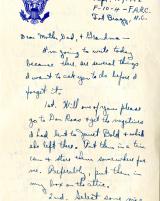 F-10-4-F.A.R.C.
Ft. Bragg, N.C.
Dear Moth, Dad, & Grandma -
I'm going to write today
because there are several things
I want to ask you to do before I
forget it.
1st. Will one of you please
go to Don Ross & get the negatives
I had lent to Janet Bold & which
she left there. Put them in a tin
can & store them somewhere for
me. Preferably, put them in
my box in the attic.
2nd. Select some nice